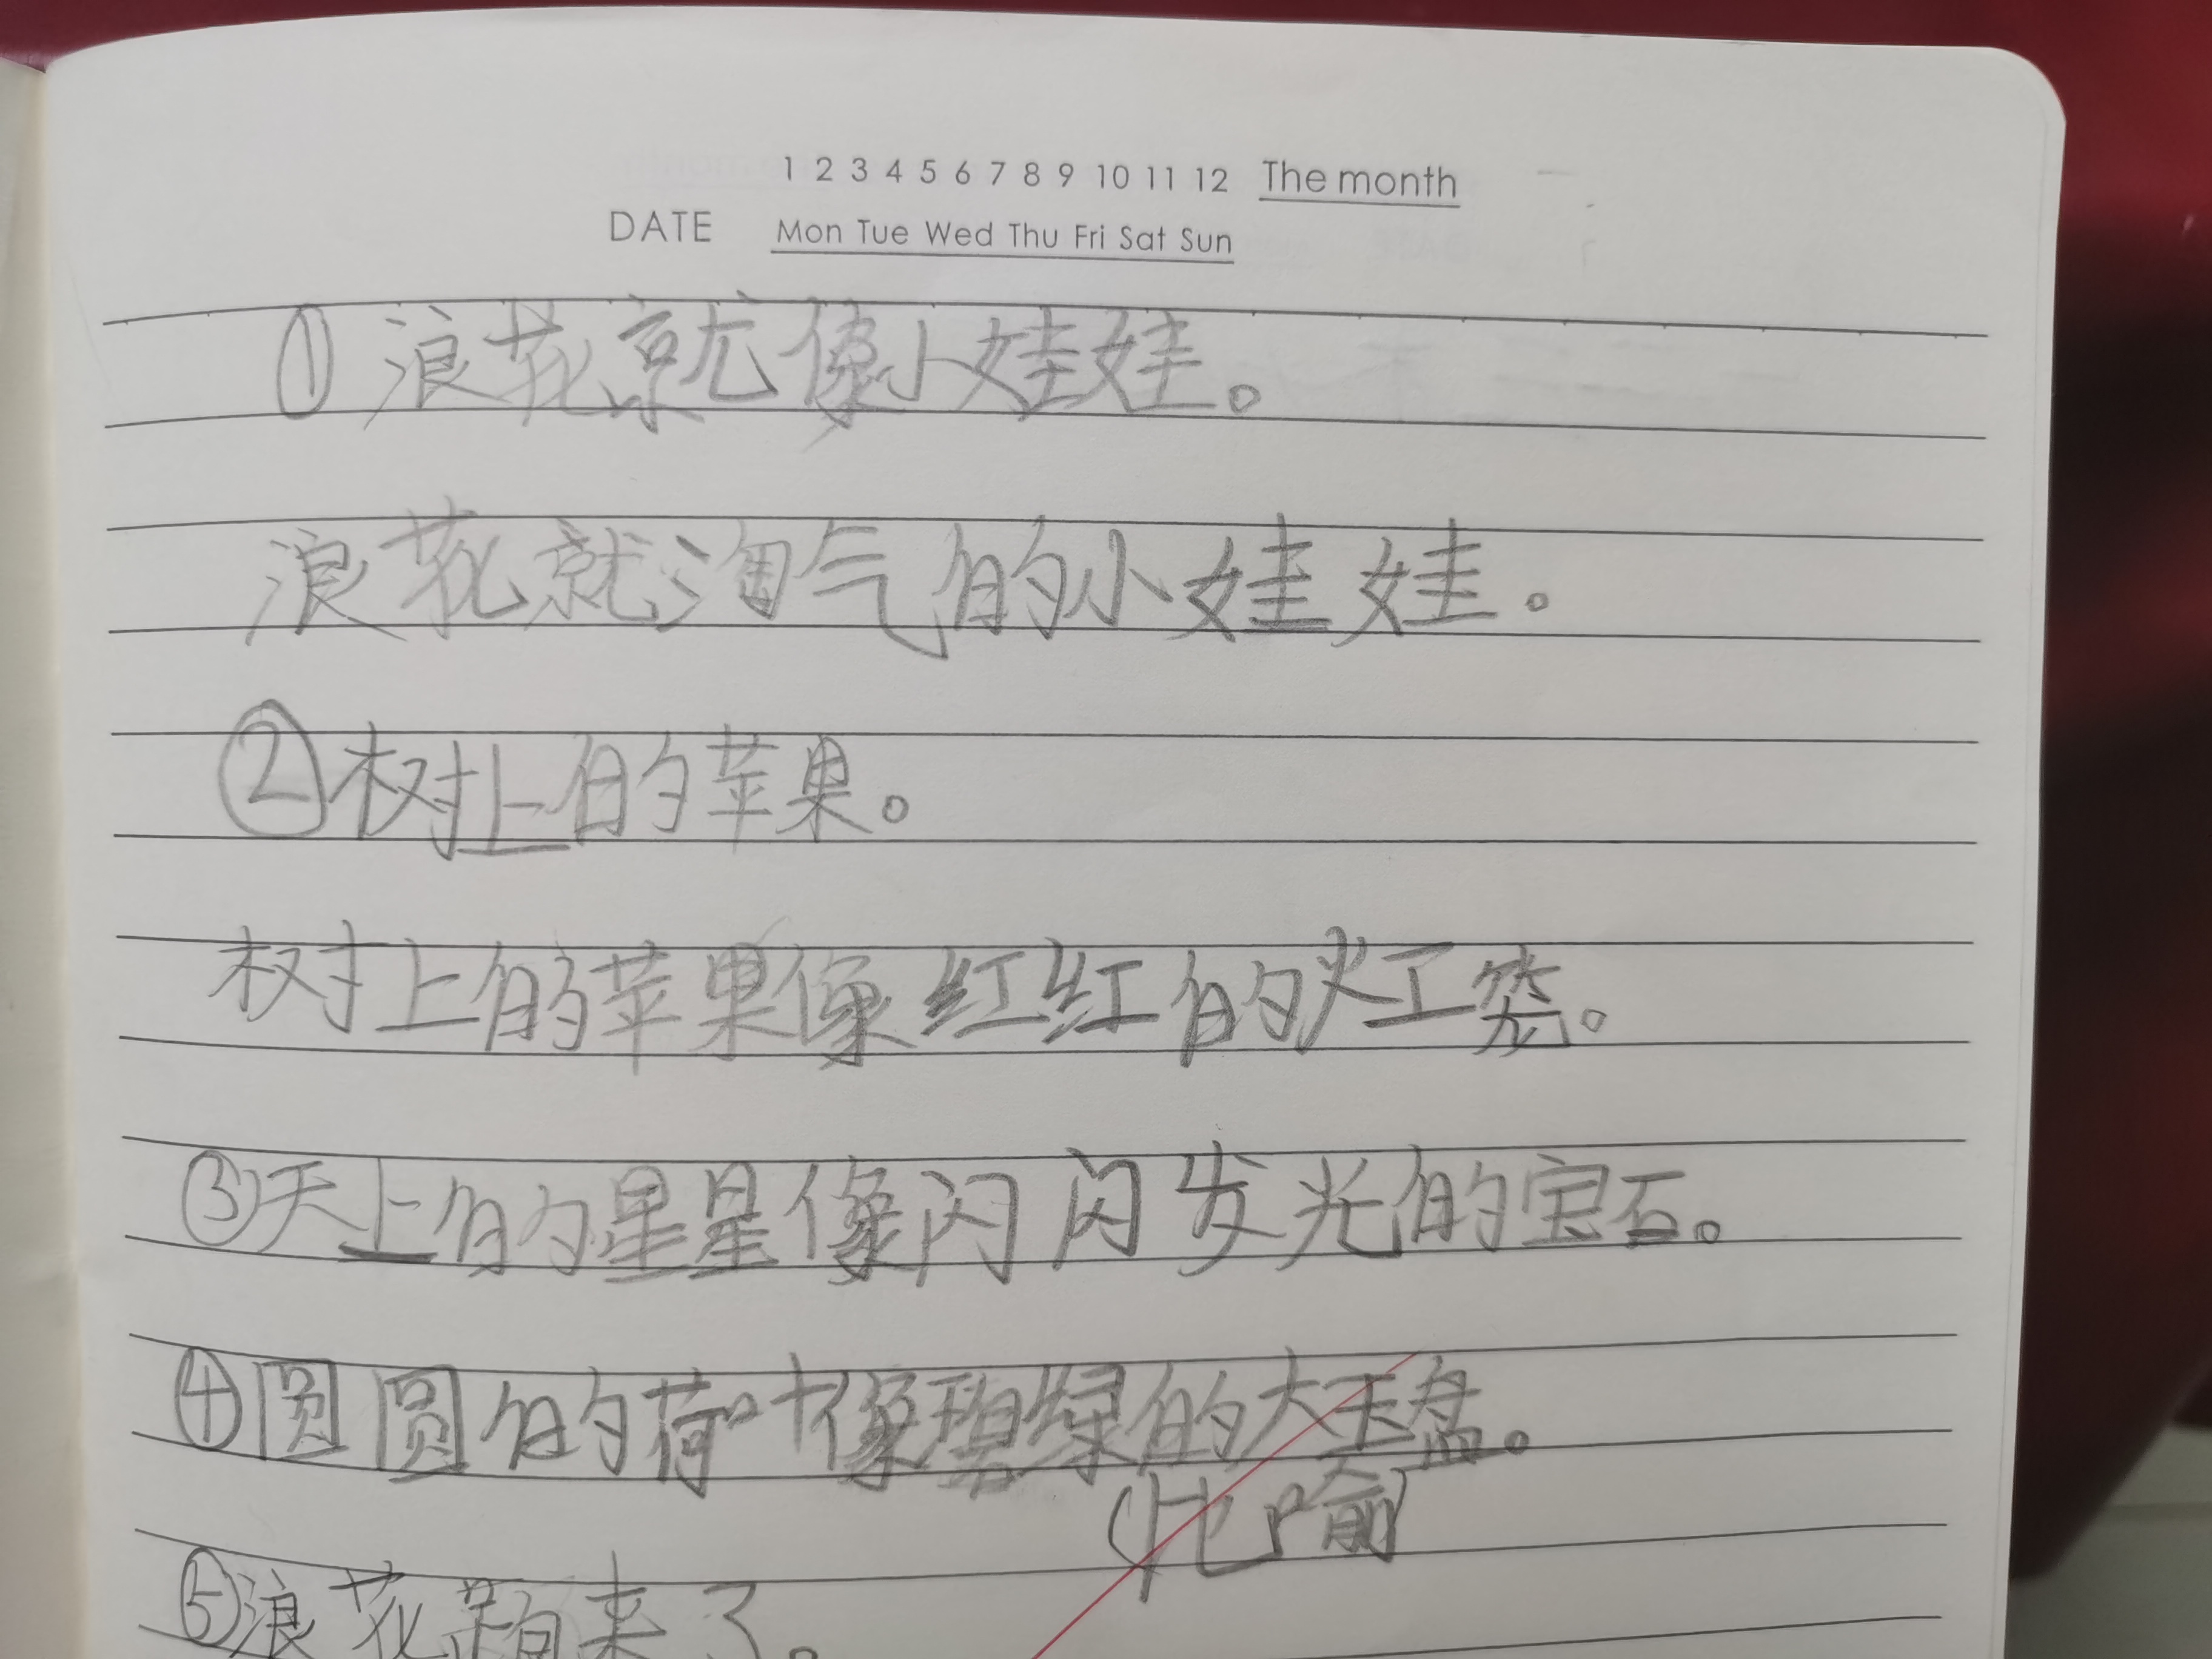 1 2 3 4 5 6 7 8 9 10 11 12 The month
DATE Mon Tue Wed Thu Fri Sat Sun
①浪花就像小娃娃。
浪花就淘气的小娃娃。
②树上的苹果。
树上的苹果像红红的灯笼。
③天上的星星像闪闪发光的宝石。
④圆圆的荷叶像碧绿的大玉盘。
(比喻)
⑤浪花 来了。